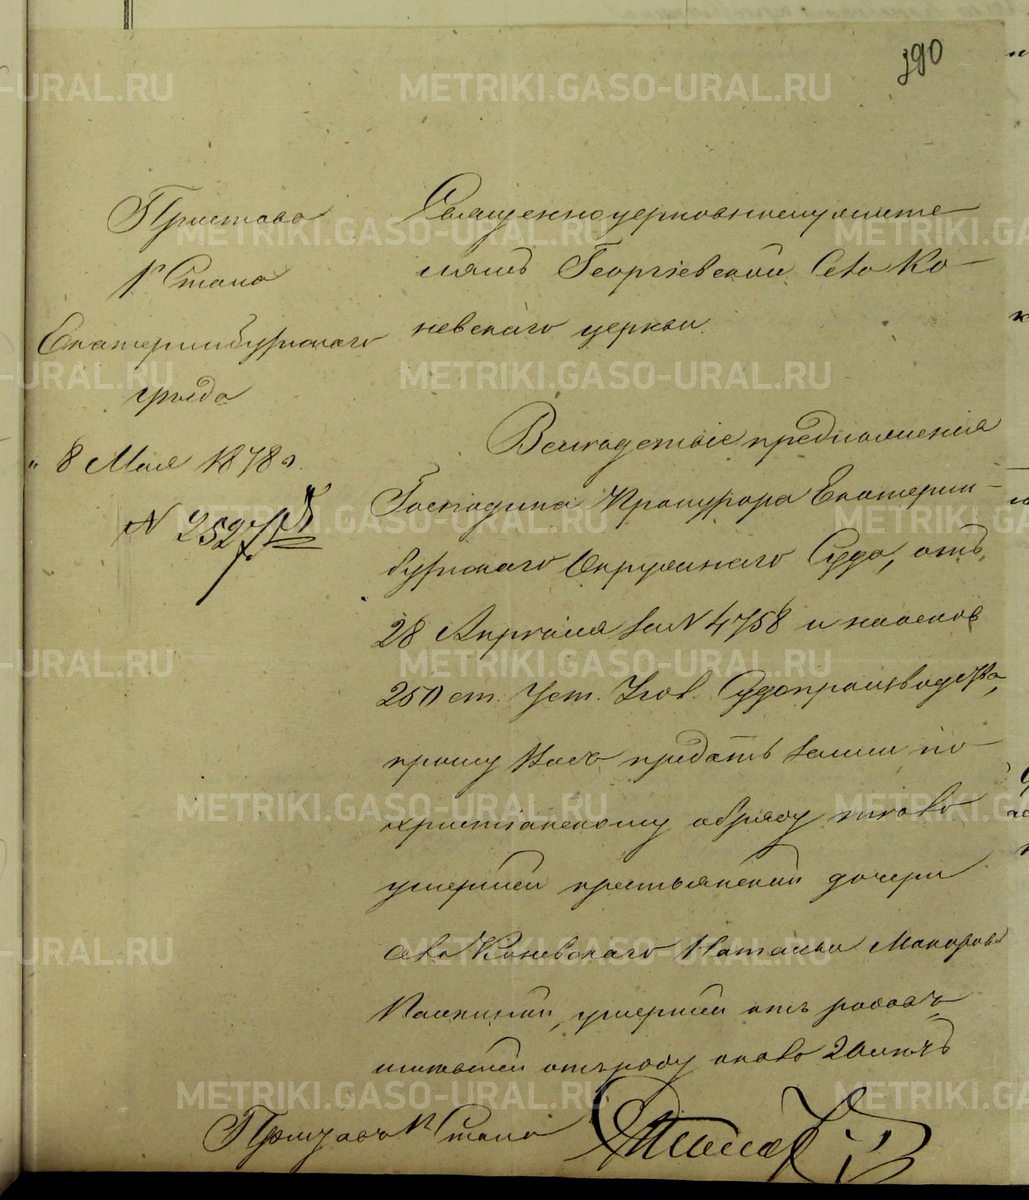 390
Пристава
1 Стана
Екатеринбургскаго
уезда
" 8 Мая 1878 г.
N 2527
Священноцерковнослужите-
лямъ Георгіевской Села Ко-
невскаго церкви.
Вслѣдствіе предложенія
Господина Прокурора Екатерин-
бургскаго Окружнаго Суда, отъ
28 Апрѣля за N 4758 и на основ
250 ст. Уст. Угов. Судопроизводства,
прошу Васъ предать земли по
христіанскому обряду тѣло
умершей крестьянской дочери
села Коневскаго Натальи Макаров
умершей отъ родовъ,
имѣвшей отъ роду около 20 лѣтъ
Приставъ 1 Стана
METRIKI.GASO-URAL.RU